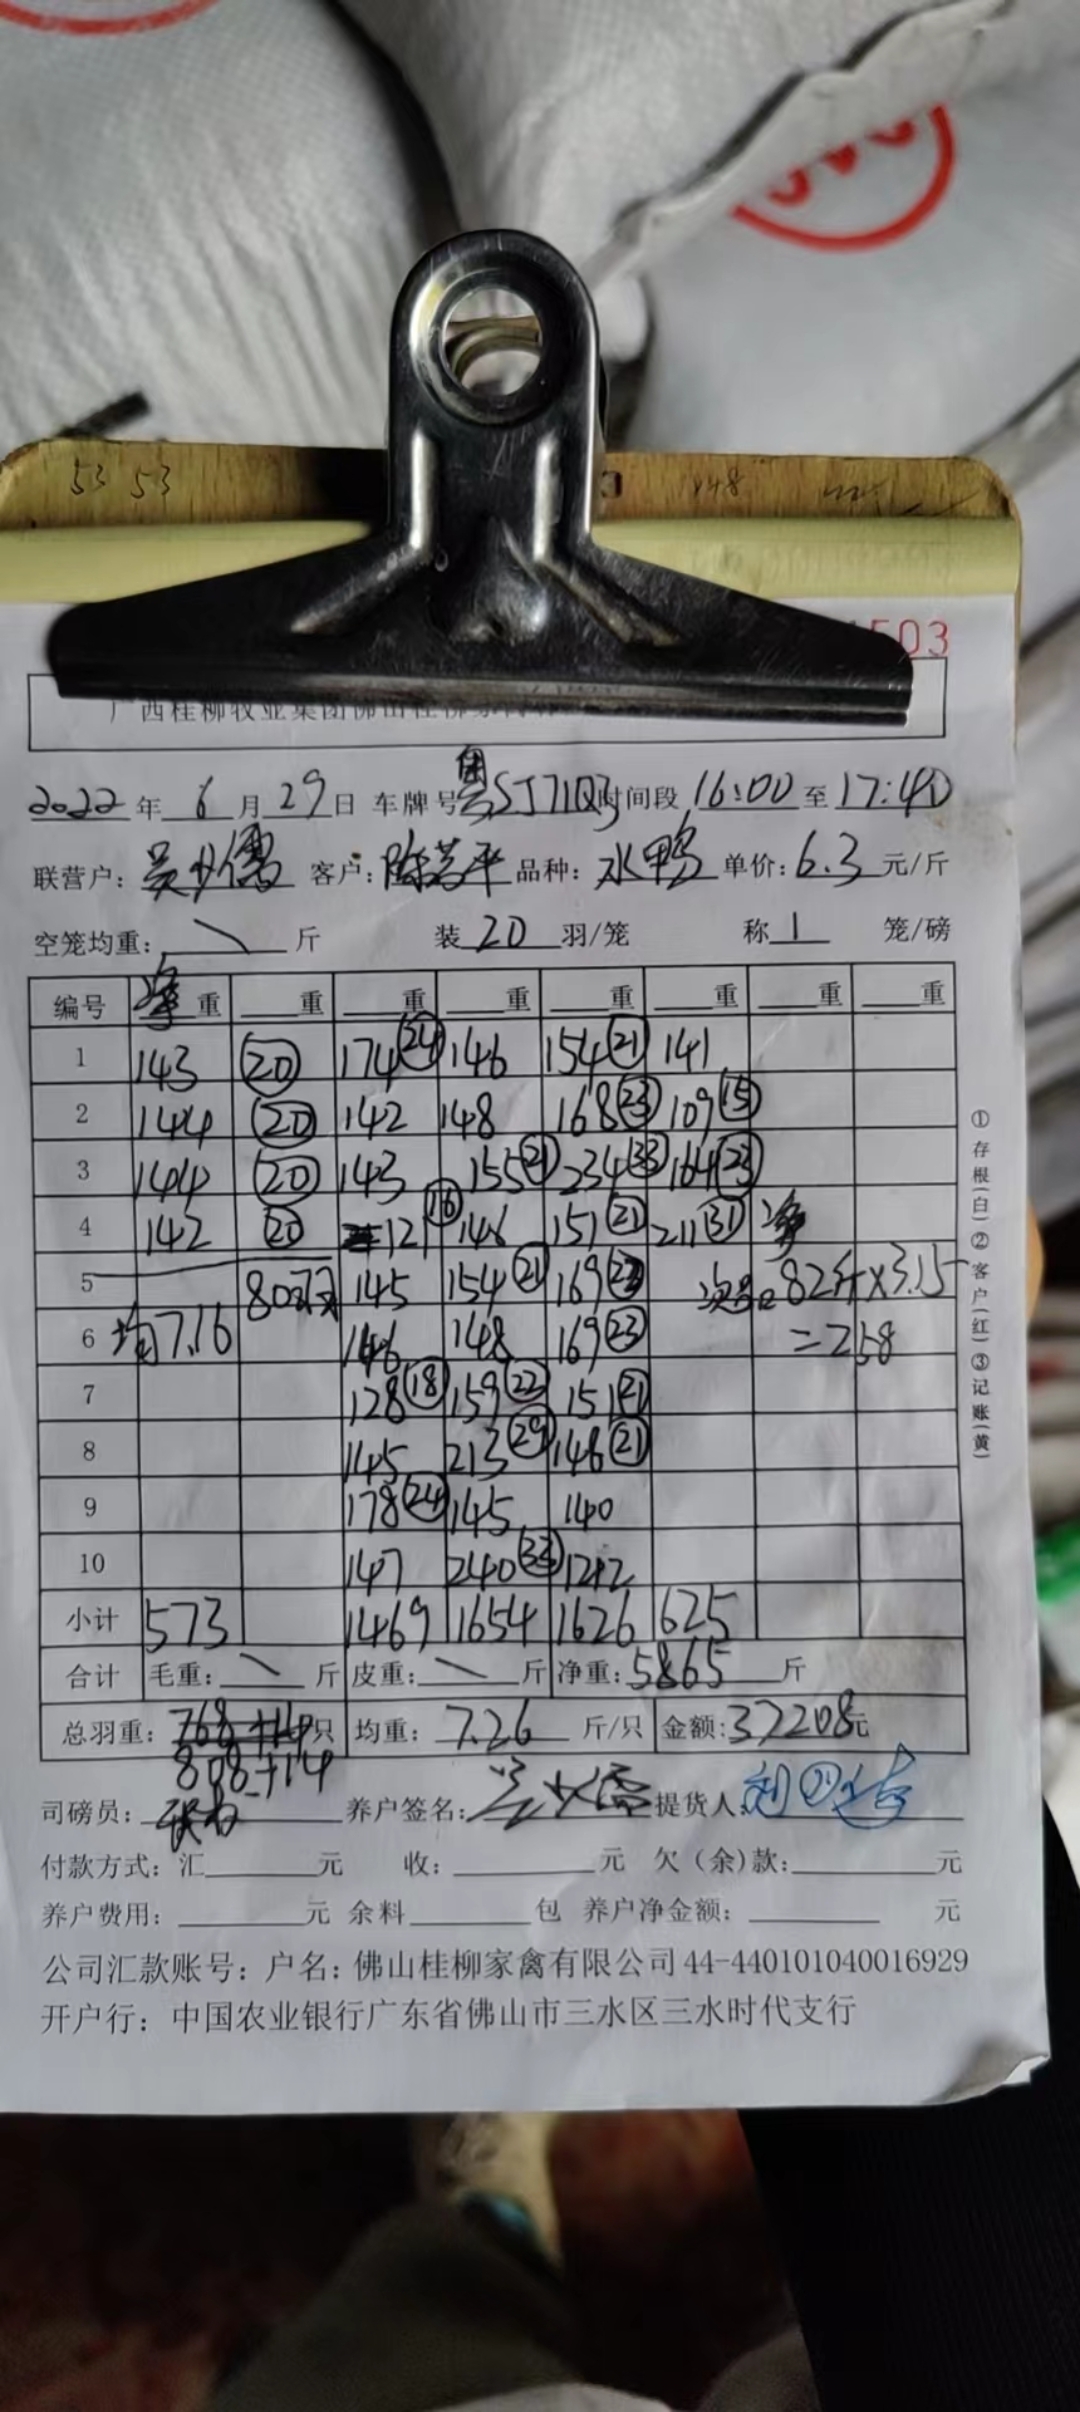 53 53
148
503
广西桂柳牧业集团佛山桂柳家
2022年 6月29日 车牌号粤SJ71Q3时间段16:00至17:40
联营户: 吴少儒 客户: 陈芳平 品种: 水鸭 单价: 6.3 元/斤
空笼均重: \ 斤 装 20 羽/笼 称 1 笼/磅
编号 净重 重 重 重 重 重 重 重
1 143 ⑳ 174 ㉔ 146 154 ㉑ 141
2 144 ⑳ 142 148 168 ㉓ 109 ⑮
3 144 ⑳ 143 155 ㉑ 234 ㉝ 164 ㉓
4 142 ⑳ 121 ⑯ 146 151 ㉑ 211 ㉛ 净
5 80 145 154 ㉑ 169 ㉓ 次品 82斤×3.15
6 均7.16 146 148 169 ㉓ =258
7 128 ⑱ 159 ㉒ 151 ㉑
8 145 213 ㉙ 148 ㉑
9 178 ㉔ 145 140
10 147 240 ㉝ 142
小计 573 1469 1654 1626 625
合计 毛重: \ 斤 皮重: \ 斤 净重: 5865 斤
总羽重: 768+14只 均重: 7.26 斤/只 金额: 37208元
808+14
司磅员: 养户签名: 吴少儒 提货人:
付款方式: 汇 元 收: 元 欠(余)款: 元
养户费用: 元 余料 包 养户净金额: 元
公司汇款账号: 户名: 佛山桂柳家禽有限公司 44-440101040016929
开户行: 中国农业银行广东省佛山市三水区三水时代支行
①存根(白)②客户(红)③记账(黄)